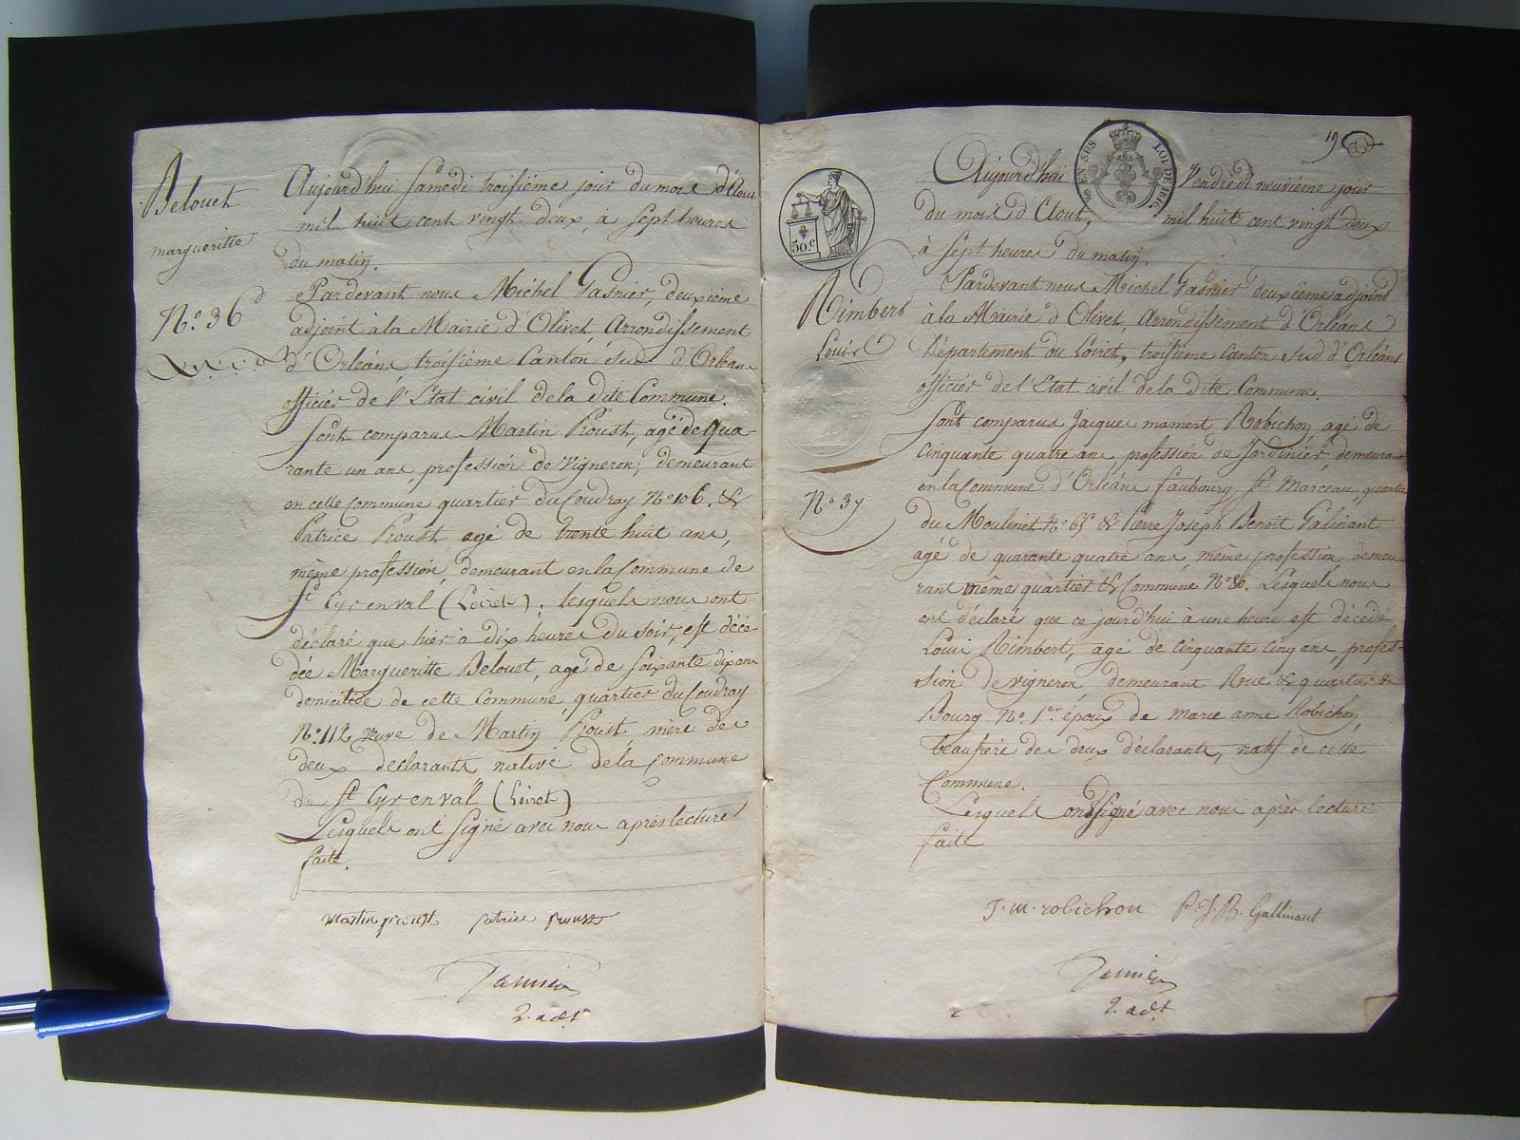 Belouet
margueritte
No. 36
Aujourd'hui Samedi troisième jour du mois d'Aout
mil huit cent vingt deux, à sept heures
du matin.
Pardevant nous Michel Gasnier, deuxième
adjoint à la Mairie d'Olivet, Arrondissement
d'Orléans troisième Canton Sud d'Orléans
officier de l'Etat civil de la dite Commune.
Sont comparus Martin Proust, agé de qua-
rante un ans, profession de vigneron, demeurant
en cette commune quartier du Coudray No. 106. &
Patrice Proust agé de trente huit ans,
même profession, demeurant en la Commune de
St Cyr en val (Loiret). lesquels nous ont
déclaré que hier à dix heures du soir, est décé-
dée Margueritte Belouet, agé de soixante dix ans
domiciliée de cette Commune quartier du Coudray
No. 112 veuve de Martin Proust mère des
deux déclarants native de la Commune
de St Cyr en val (Loiret)
Lesquels ont signé avec nous après lecture
faite.
Martin proust patrice proust
Gasnier
2. adt
19
EN SUS LOI DE 1816
50c
Rimbert
Louis
No. 37
Aujourd'hui Vendredi neuvième jour
du mois d'Aout, mil huit cent vingt deux
à sept heures du matin.
Pardevant nous Michel Gasnier deuxième adjoint
à la Mairie d'Olivet, Arrondissement d'Orléans
Département du Loiret, troisième canton Sud d'Orléans
officier de l'Etat civil de la dite Commune.
Sont comparus Jacques mamert Robichon agé de
Cinquante quatre ans profession de Jardinier, demeurant
en la Commune d'Orléans faubourg St Marceau, quartier
du Moulinet No. 65 & Pierre Joseph Benoît Galinant
agé de quarante quatre ans, même profession demeu-
rant même quartier & Commune No. 86. Lesquels nous
ont déclaré que ce jourd'hui à une heure est décédé
Louis Rimbert, agé de cinquante cinq ans, profes-
sion de vigneron demeurant Rue & quartier du
Bourg No. 1er époux de marie anne Robichon,
beaufrère des deux déclarants, natif de cette
Commune.
Lesquels ont signé avec nous après lecture
faite
J. m. robichon P. J. B. Gallinant
Gasnier
2. adt